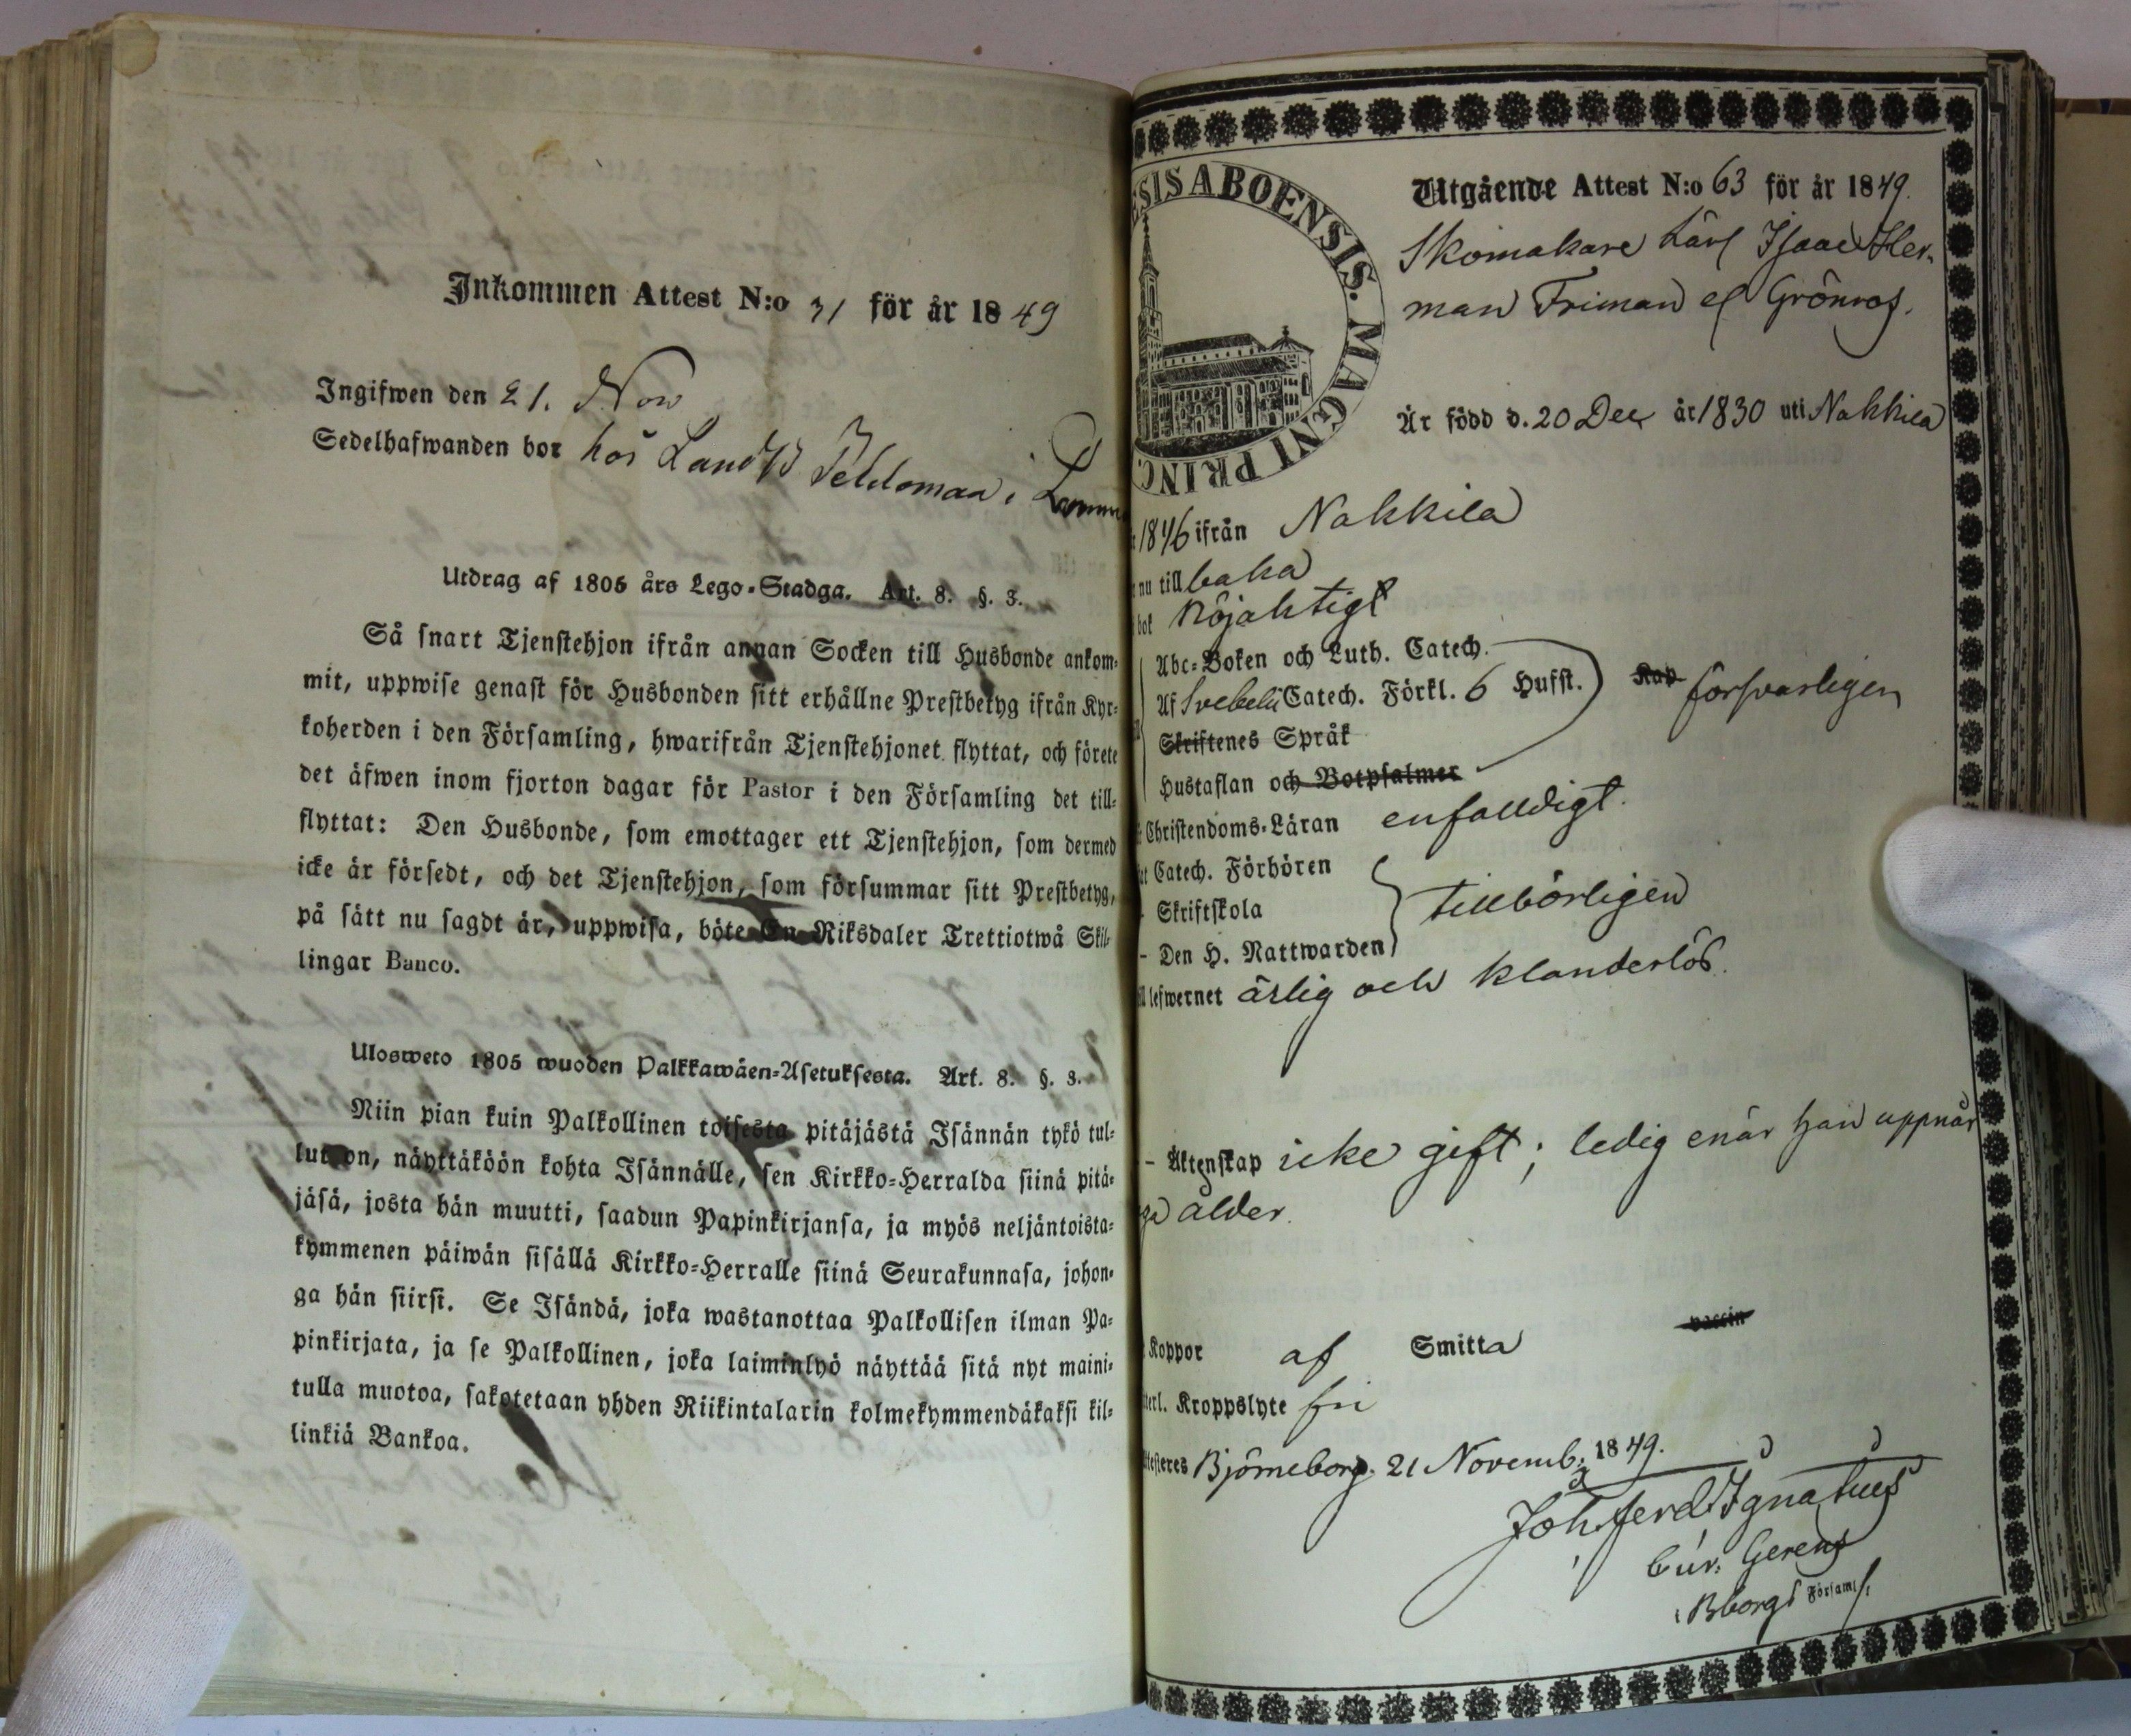 Inkommen Attest N:o 31 för år 1849
Ingifwen den 21. Nov
Sedelhafwanden bor hos
Utdrag af 1805 års Lego-Stadga. Art. 8. §. 3.
Så snart Tjenstehjon ifrån annan Socken till Husbonde ankom-
mit, uppwise genast för Husbonden sitt erhållne Prestbetyg ifrån Kyr-
koherden i den Församling, hwarifrån Tjenstehjonet flyttat, och förete
det äfwen inom fjorton dagar för Pastor i den Församling det till-
flyttat: Den Husbonde, som emottager ett Tjenstehjon, som dermed
icke är försedt, och det Tjenstehjon, som försummar sitt Prestbetyg,
på sätt nu sagdt är, uppwisa, böte En Riksdaler Trettiotwå Skil-
lingar Banco.
Ulosweto 1805 wuoden Palkkawäen-Asetuksesta. Art. 8. §. 3.
Niin pian kuin Palkollinen toisesta pitäjästä Isännän tykö tul-
lut on, näyttäköön kohta Isännälle, sen Kirkko-Herralda siinä pitä-
jäsä, josta hän muutti, saadun Papinkirjansa, ja myös neljäntoista-
kymmenen päiwän sisällä Kirkko-Herralle siinä Seurakunnasa, johon-
ga hän siirsi. Se Isändä, joka wastanottaa Palkollisen ilman Pa-
pinkirjata, ja se Palkollinen, joka laiminlyö näyttää sitä nyt maini-
tulla muotoa, sakotetaan yhden Riikintalarin kolmekymmendäkaksi kil-
linkiä Bankoa.
ESIS ABOENSIS. MAGNI PRINC
Utgående Attest N:o 63 för år 1849.
Skomakare Lärl Isaac Her-
man Friman el Grönros.
Är född d. 20 Dec år 1830 uti Nakkila
1846 ifrån Nakkila
nu tillbaka
bok Nöjaktigt
Abc-Boken och Luth. Catech.
Af Svebelii Catech. Förkl. 6 Hufst. försvarligen
Skriftenes Språk
Hustaflan och Botpsalmer
Christendoms-Läran enfalldigt.
Catech. Förhören
Skriftskola tillbörligen
- Den H. Nattwarden
lefwernet ärlig och klanderlös.
- Äktenskap icke gift; ledig enär han uppnår
ålder.
Koppor af Smitta
Kroppslyte fri
Björneborg. 21 Novemb: 1849.
Joh. Ferd. Ignatius
Cur: Gerens
i Bborgs Församl: